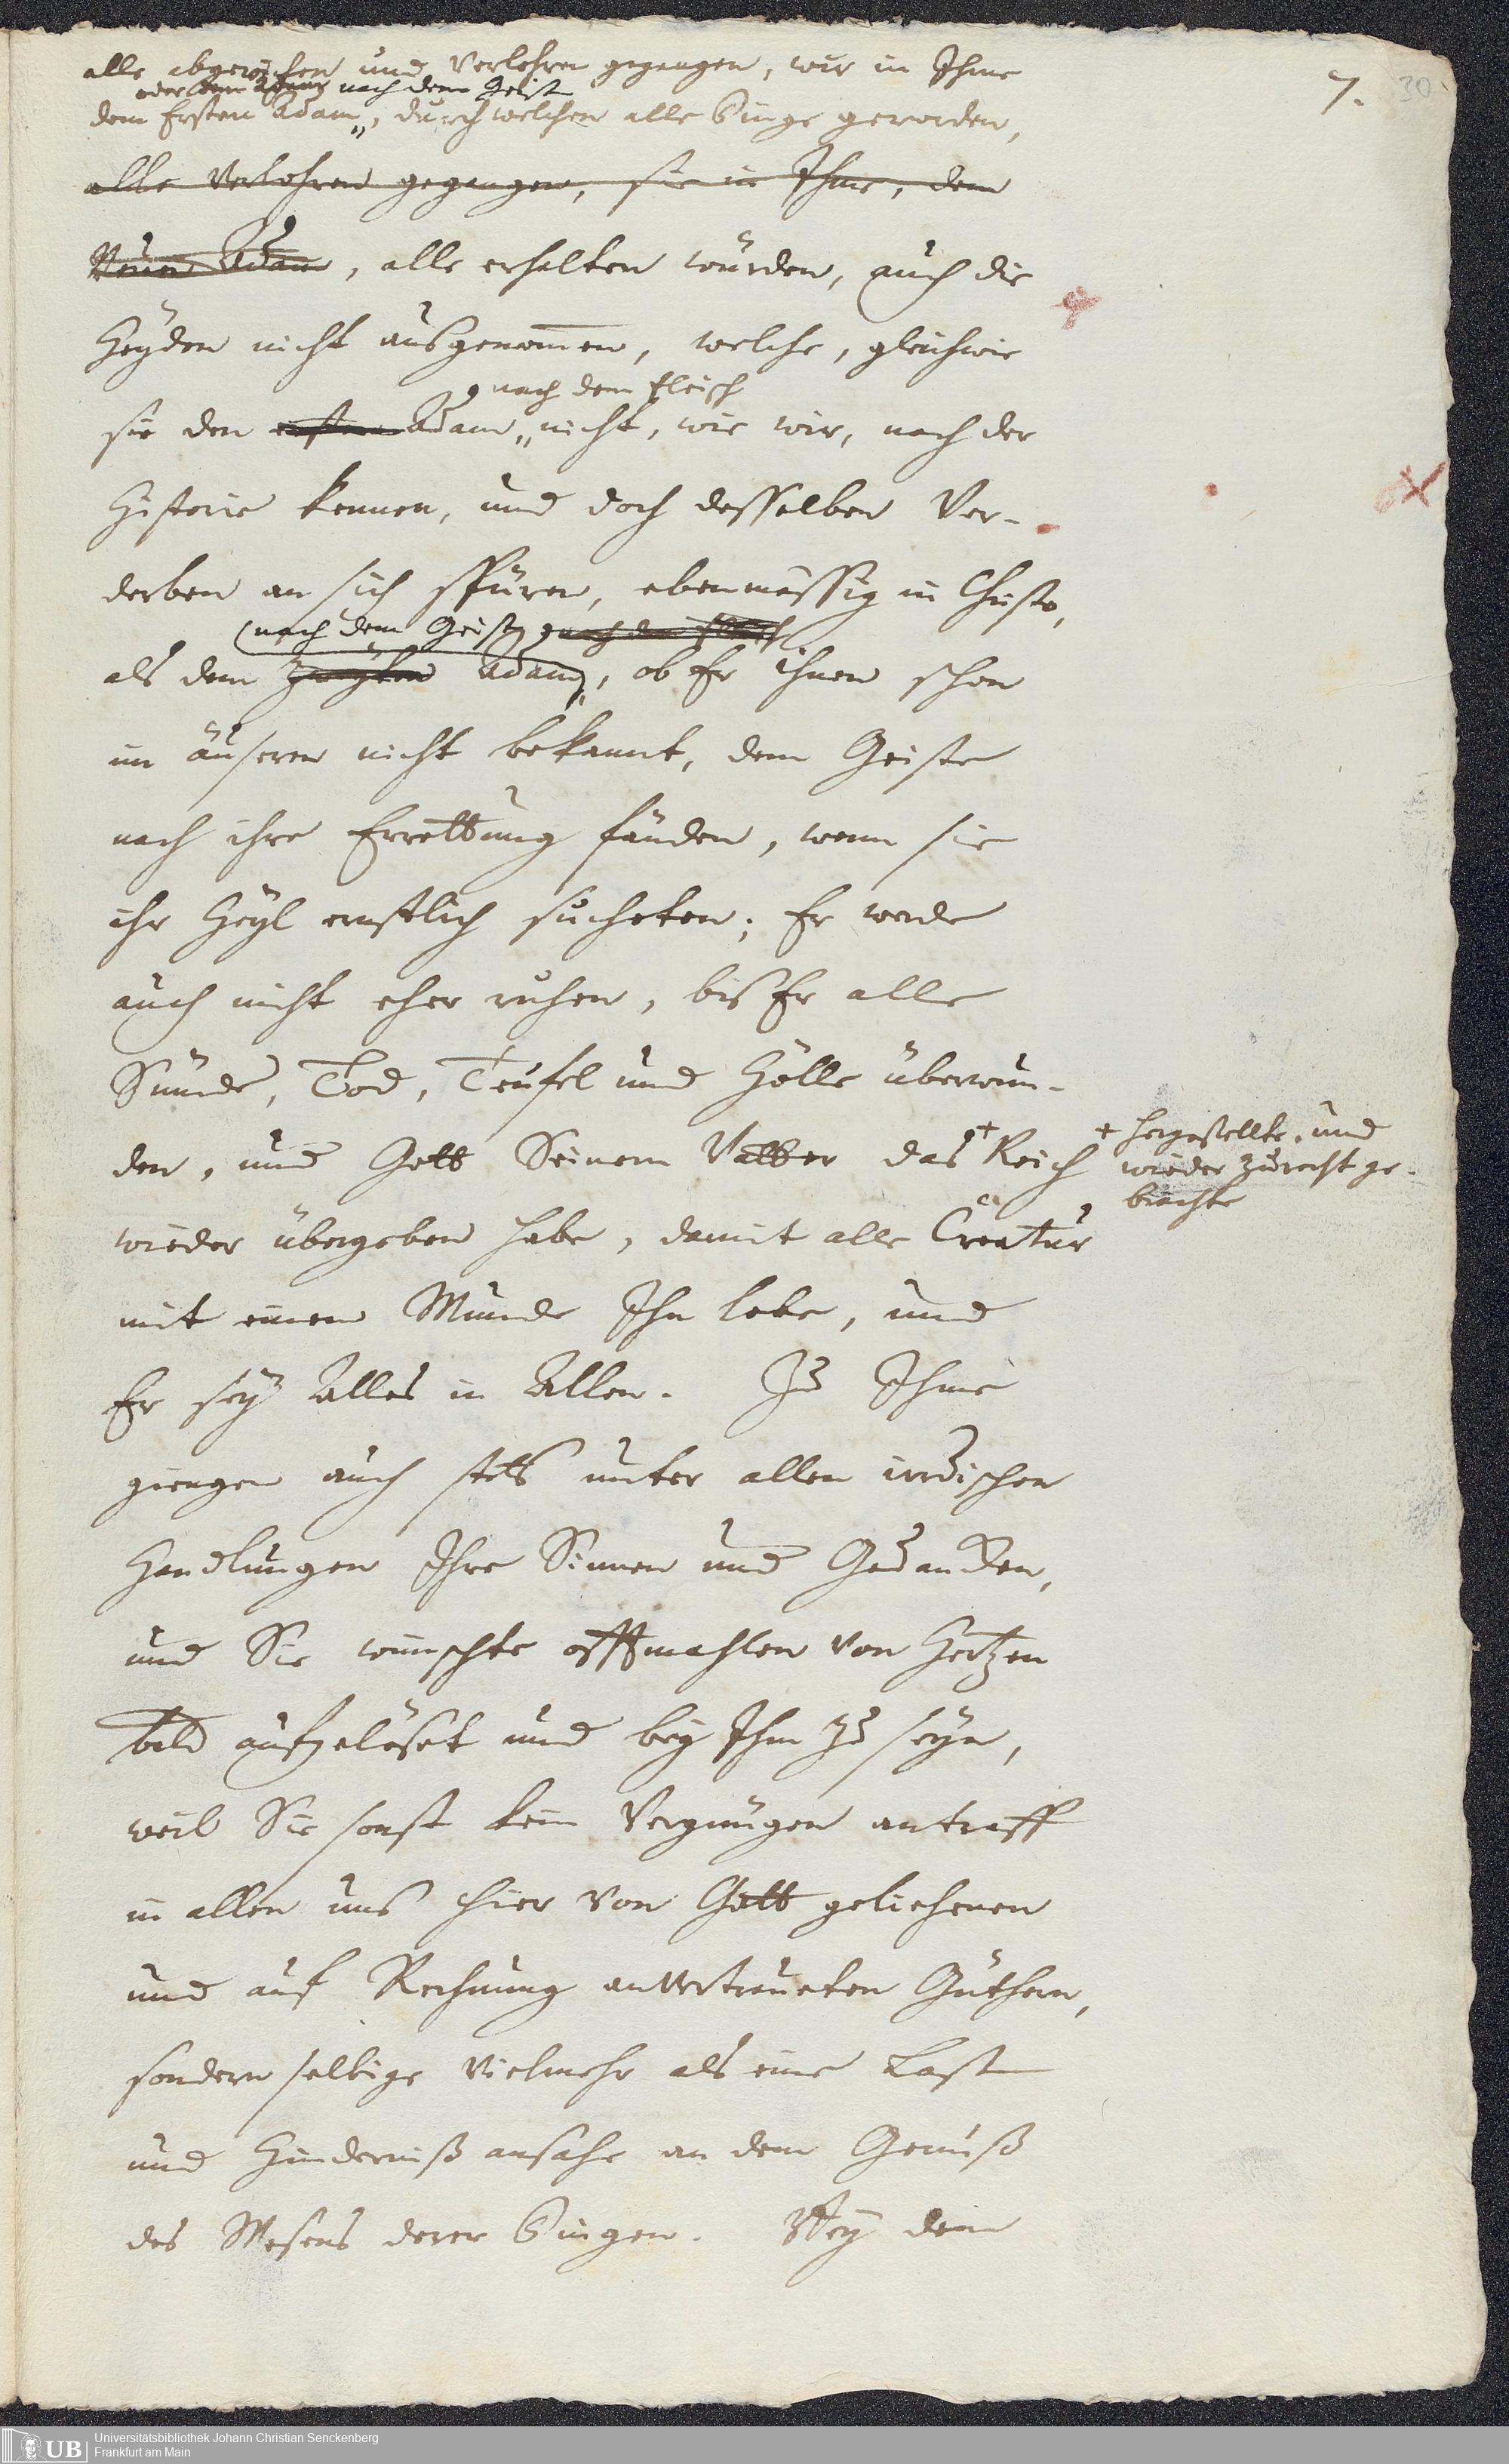 7. 30
alle abgewichen und verlohren gegangen, wir in Ihme
oder dem Adam nach dem Geist
dem Ersten Adam, durch welchen alle Dinge geworden,
alle verlohren gegangen, sie in Ihme, dem
Neuen Adam, alle erhalten würden, auch die
Heyden nicht ausgenom̅en, welche, gleichwie
nach dem Fleisch
sie den ersten Adam nicht, wie wir, nach der
Historie kennen, und doch desselben Ver-
derben an sich spüren, ebenmässig in Christo,
nach dem Geist, nach dem Fleisch
als dem zweyten Adam, ob Er ihnen schon
im äuseren nicht bekannt, dem Geiste
nach ihre Errettung fänden, wenn sie
ihr Heyl ernstlich sucheten; Er werde
auch nicht eher ruhen, bis Er alle
Sünde, Tod, Teufel und Hölle überwun-
den, und Gott Seinem Vatter das + Reich
+ hergestellte und
wieder zurecht ge-
brachte
wieder übergeben habe, damit alle Creatur
mit einem Munde Ihn lobe, und
Er sey Alles in Allen. Zu Ihme
giengen auch stets unter allen irrdischen
Handlungen Ihre Sinnen und Gedancken,
und Sie wünschte offtmahlen von Hertzen
bald aufgelöset und bey Ihm zu seyn,
weil Sie sonst kein Vergnügen antraff
in allen uns hier von Gott geliehenen
und auf Rechnung anvertraueten Güthern,
sondern selbige vielmehr als eine Last
und Hinderniß ansahe an dem Genuß
des Wesens derer Dingen. Bey dem
UB Universitätsbibliothek Johann Christian Senckenberg
Frankfurt am Main